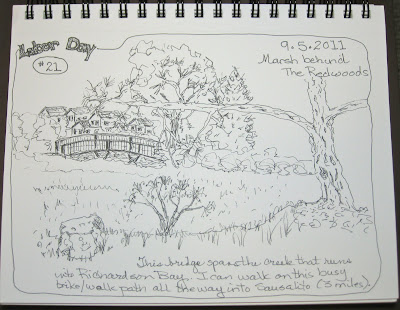 Labor Day
#21
9.5.2011
Marsh behind
The Redwoods
This bridge spans the creek that runs
into Richardson Bay. I can walk on this busy
bike/walk path all the way into Sausalito (3 miles).